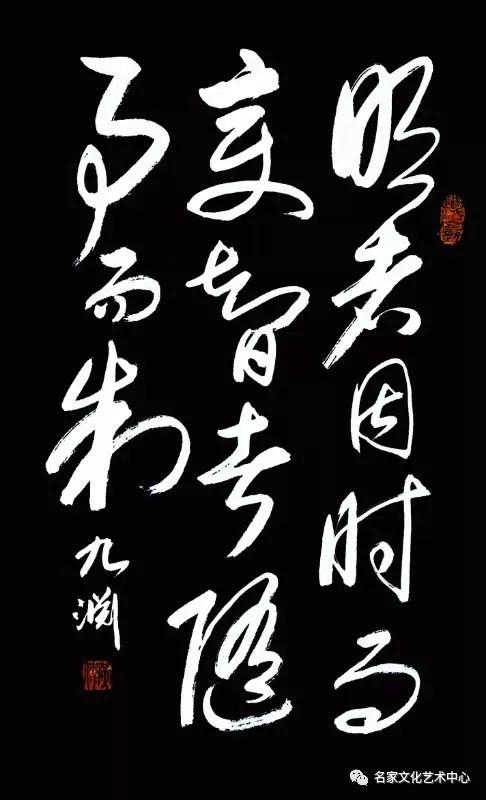 明者因时而
变智者随
事而制
九渊
名家文化艺术中心